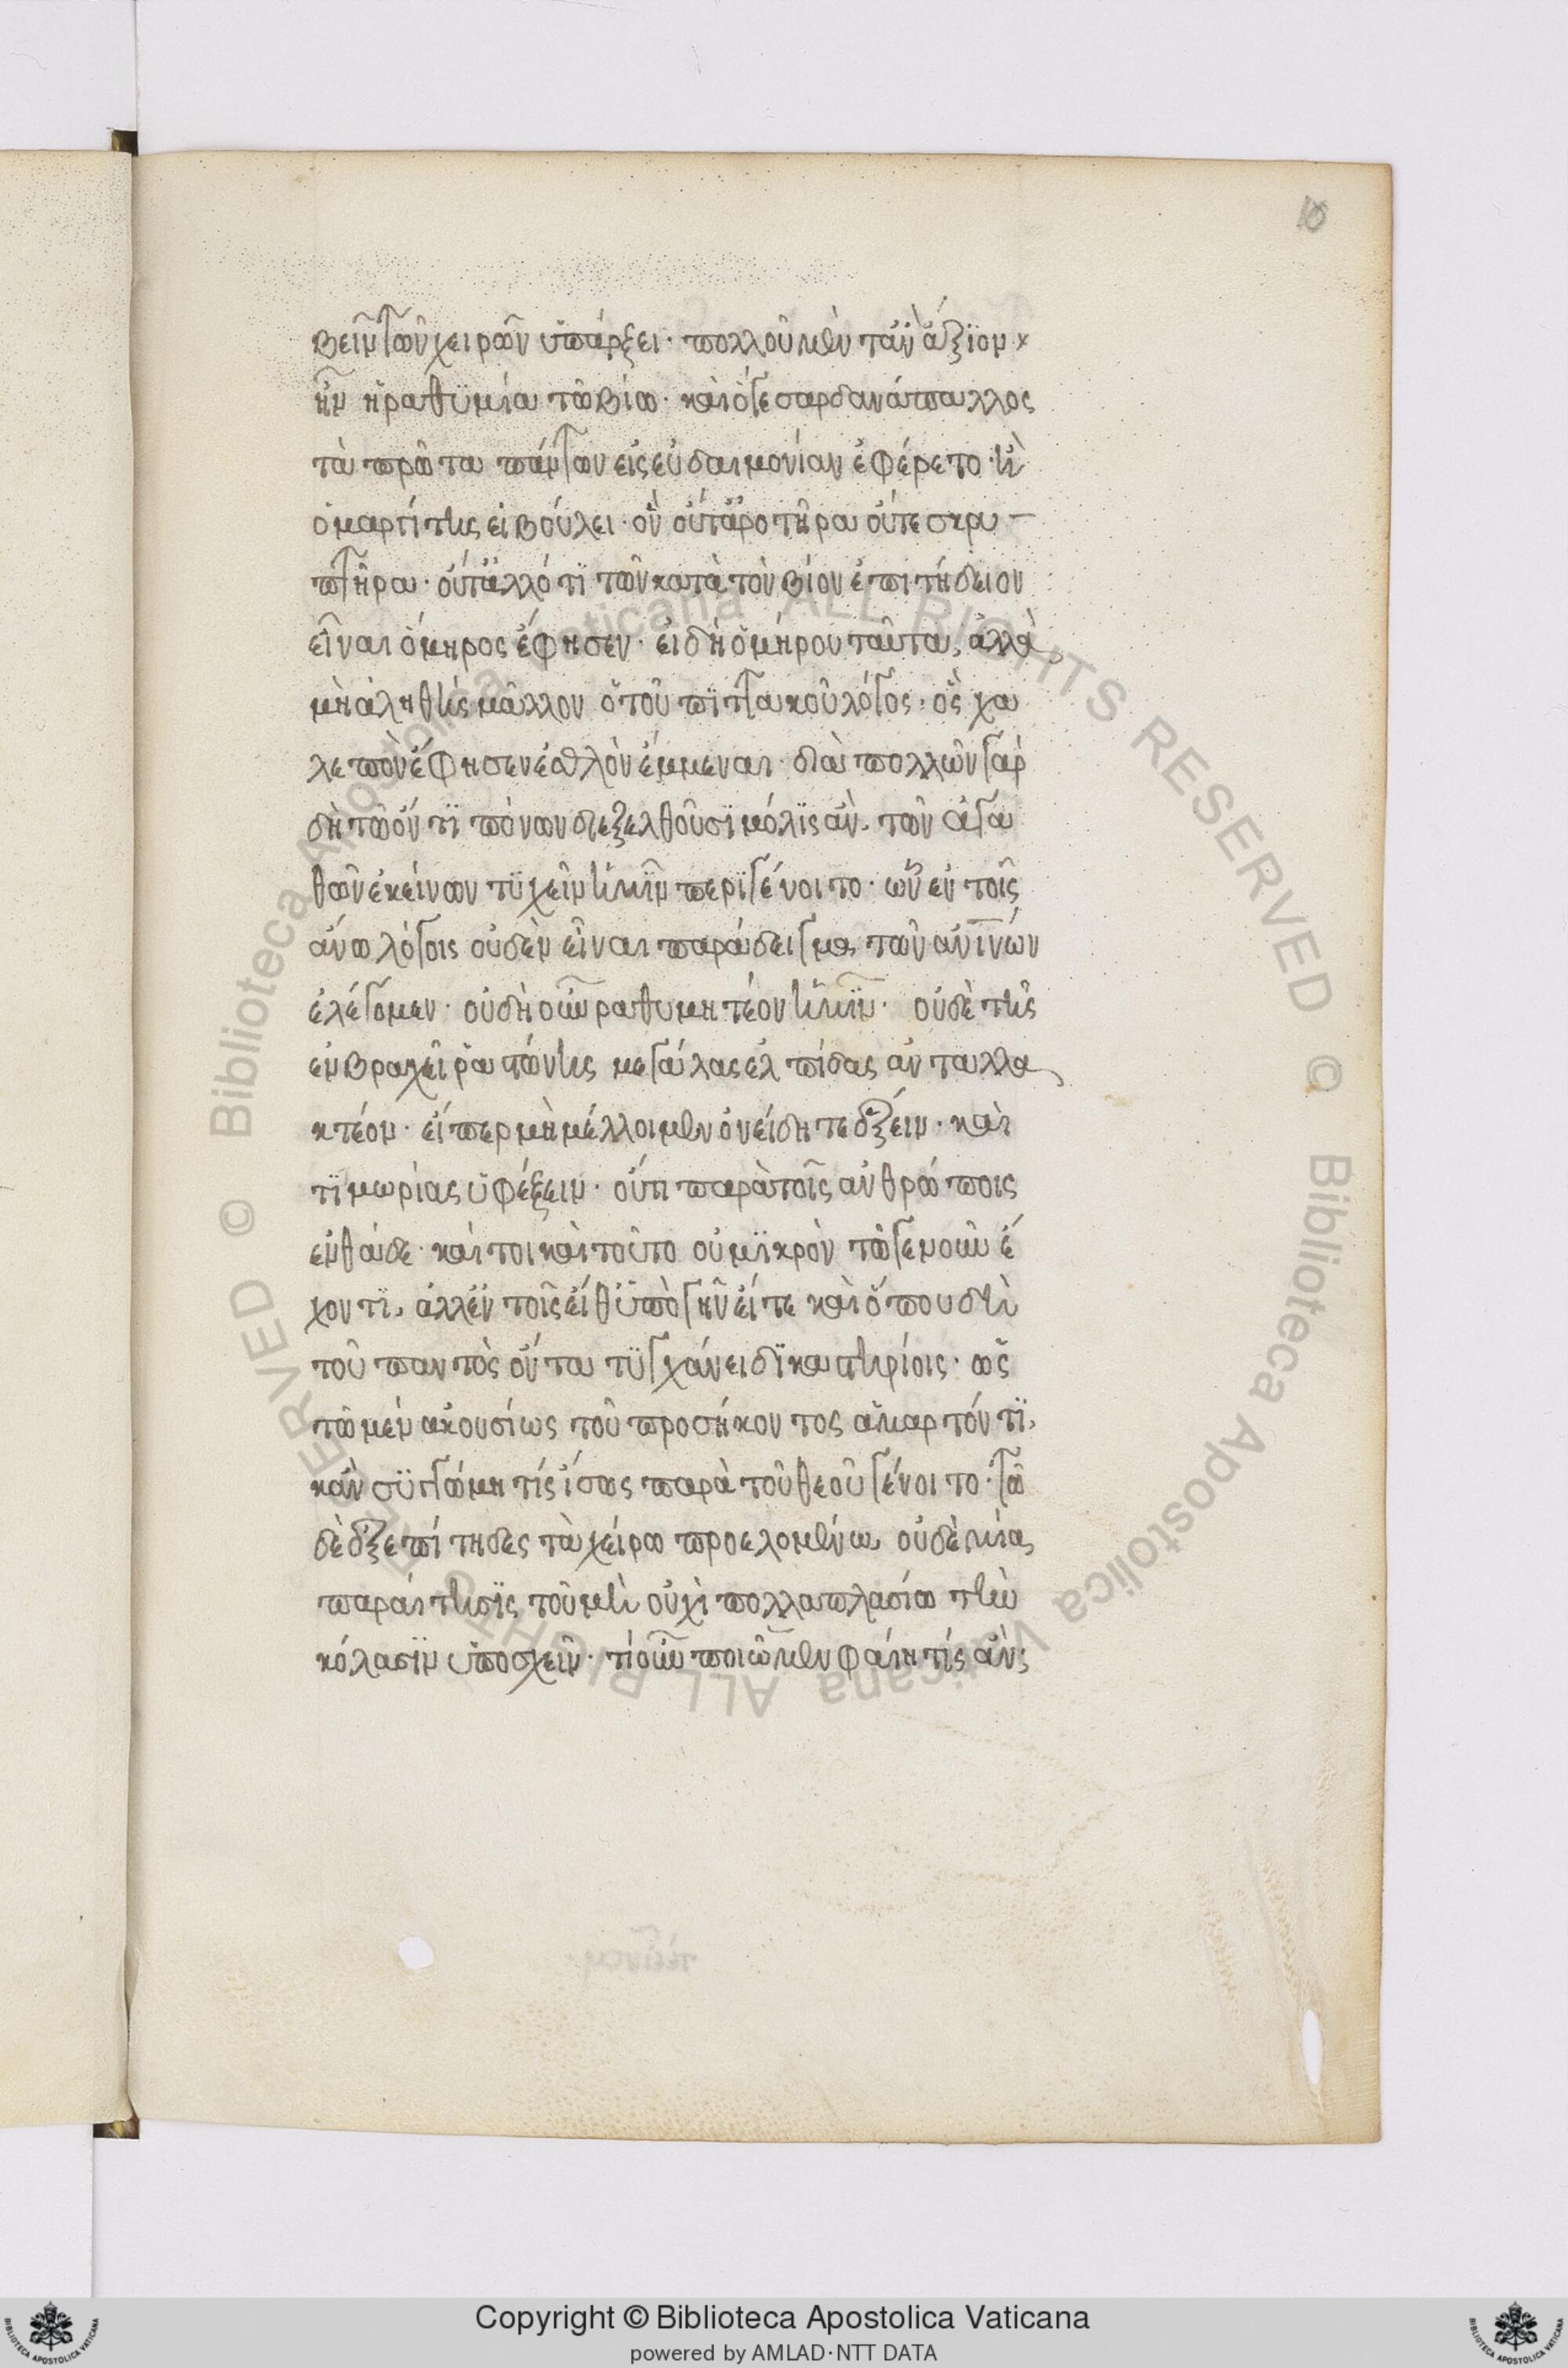 10
βεῖν τῶν χειρῶν ὑπάρξει· πολλοῦ μὲν τἂν ἄξιον
ἦν ἡ ραθυμία τῶ βίω· καὶ ὅγε σαρδανάπαλλος
τὰ πρῶτα πάντων εἰς εὐδαιμονίαν ἐφέρετο· ἢ
ὁ μαργίτης εἰ βούλει· ὃν οὔτ' ἀροτῆρα οὔτε σκα
πτῆρα· οὔτ' ἄλλό τι τῶν κατὰ τὸν βίον ἐπιτήδειον
εἶναι ὅμηρος ἔφησεν· εἰ δὴ ὁμήρου ταῦτα, ἀλλὰ
μὴ ἀληθὴς μᾶλλον ὁ τοῦ πιττακοῦ λόγος, ὃς χα
λεπὸν ἔφησεν ἐσθλὸν ἔμμεναι· διὰ πολλῶν γὰρ
δὴ τῶ ὄντι πόνων διεξελθοῦσι μόλις ἂν, τῶν ἀγα
θῶν ἐκείνων τυχεῖν ἡμῖν περιγένοιτο· ὧν ἐν τοῖς
ἄνω λόγοις οὐδὲν εἶναι παράδειγμα τῶν ἀνινων
ἐλέγομεν· οὐ δὴ οὖν ραθυμητέον ἡμῖν· οὐδὲ τῆς
ἐν βραχεῖ ραστώνης μεγάλας ἐλπίδας ἀνταλλα
κτέον· εἴπερ μὴ μέλλοιμεν ὀνείδη τε ἕξειν· καὶ
τιμωρίας ὑφέξειν· οὔτι παρὰ τοῖς ἀνθρώποις
ἐνθάδε· καίτοι καὶ τοῦτο οὐ μικρὸν τῶ γε νοῦν ἔ
χοντι, ἀλλ' ἐν τοῖς εἴθ' ὑπὸ γῆν εἴτε καὶ ὅπου δὴ
τοῦ παντὸς ὄντα τυγχάνει δικαστηρίοις· ὡς
τῶ μὲν ἀκουσίως τοῦ προσήκοντος ἁμαρτόντι,
κἂν συγγνώμη τίς ἴσως παρὰ τοῦ θεοῦ γένοιτο· τῶ
δὲ ἐξεπίτηδες τὰ χείρω προελομένω, οὐδεμία
παραίτησις τοῦ μὴ οὐχὶ πολλαπλασίω τὴν
κόλασιν ὑποσχεῖν· τί οὖν ποιῶμεν φαίη τίς ἂν;
Copyright © Biblioteca Apostolica Vaticana
powered by AMLAD·NTT DATA